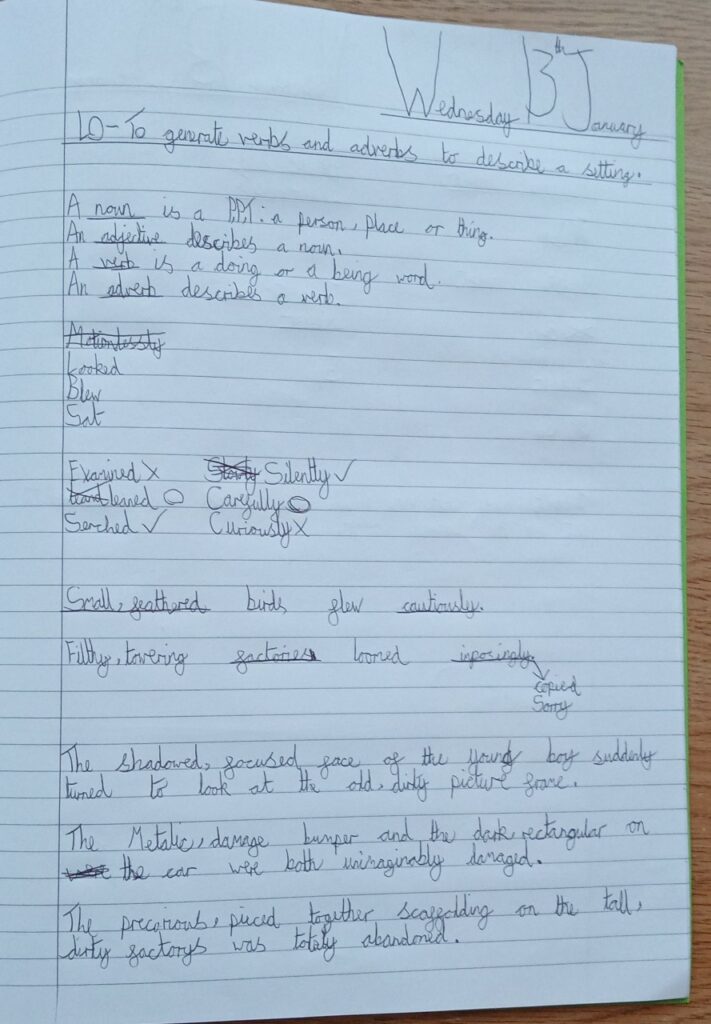 Wednesday 13th January
LO - To generate verbs and adverbs to describe a setting.
A noun is a P,P,T: a person, place or thing.
An adjective describes a noun.
A verb is a doing or a being word.
An adverb describes a verb.
Motionlessly
Looked
Blew
Sat
Examined X Silently ✓
leaned O Carefully O
Serched ✓ Curiously X
Small, feathered birds flew cautiously.
Filthy, towering factories loomed imposingly
copied
Sorry
The shadowed, focused face of the young boy suddenly
turned to look at the old, dirty picture frame.
The Metalic, damage bumper and the dark, rectangular on
the car were both unimaginably damaged.
The precarious, pieced together scaffolding on the tall,
dirty factorys was totaly abandoned.